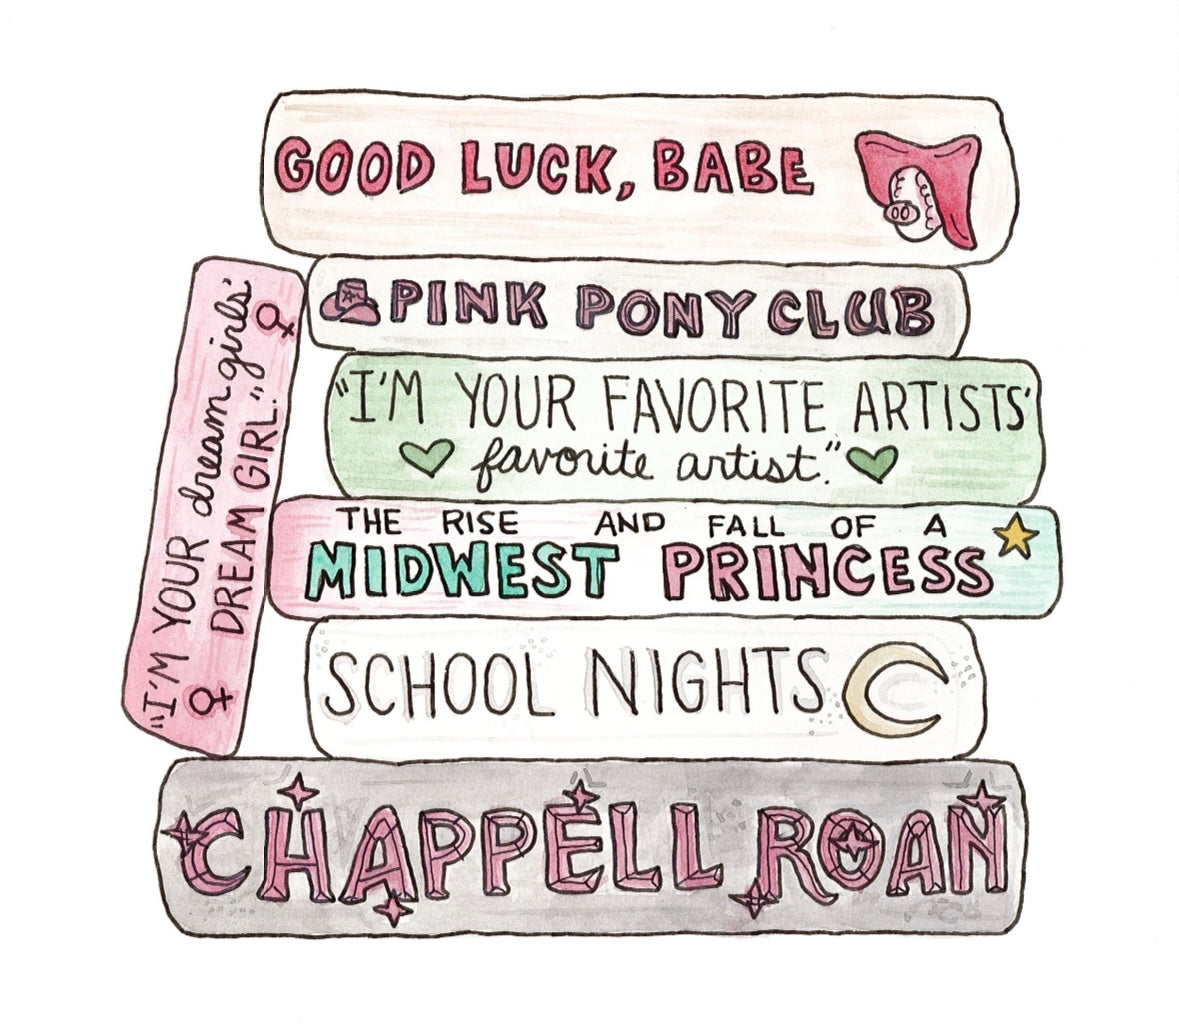 GOOD LUCK, BABE
PINK PONY CLUB
"I'M YOUR FAVORITE ARTISTS'
favorite artist."
THE RISE AND FALL OF A
MIDWEST PRINCESS
SCHOOL NIGHTS
CHAPPELL ROAN
"I'M YOUR dream girls'
DREAM GIRL."